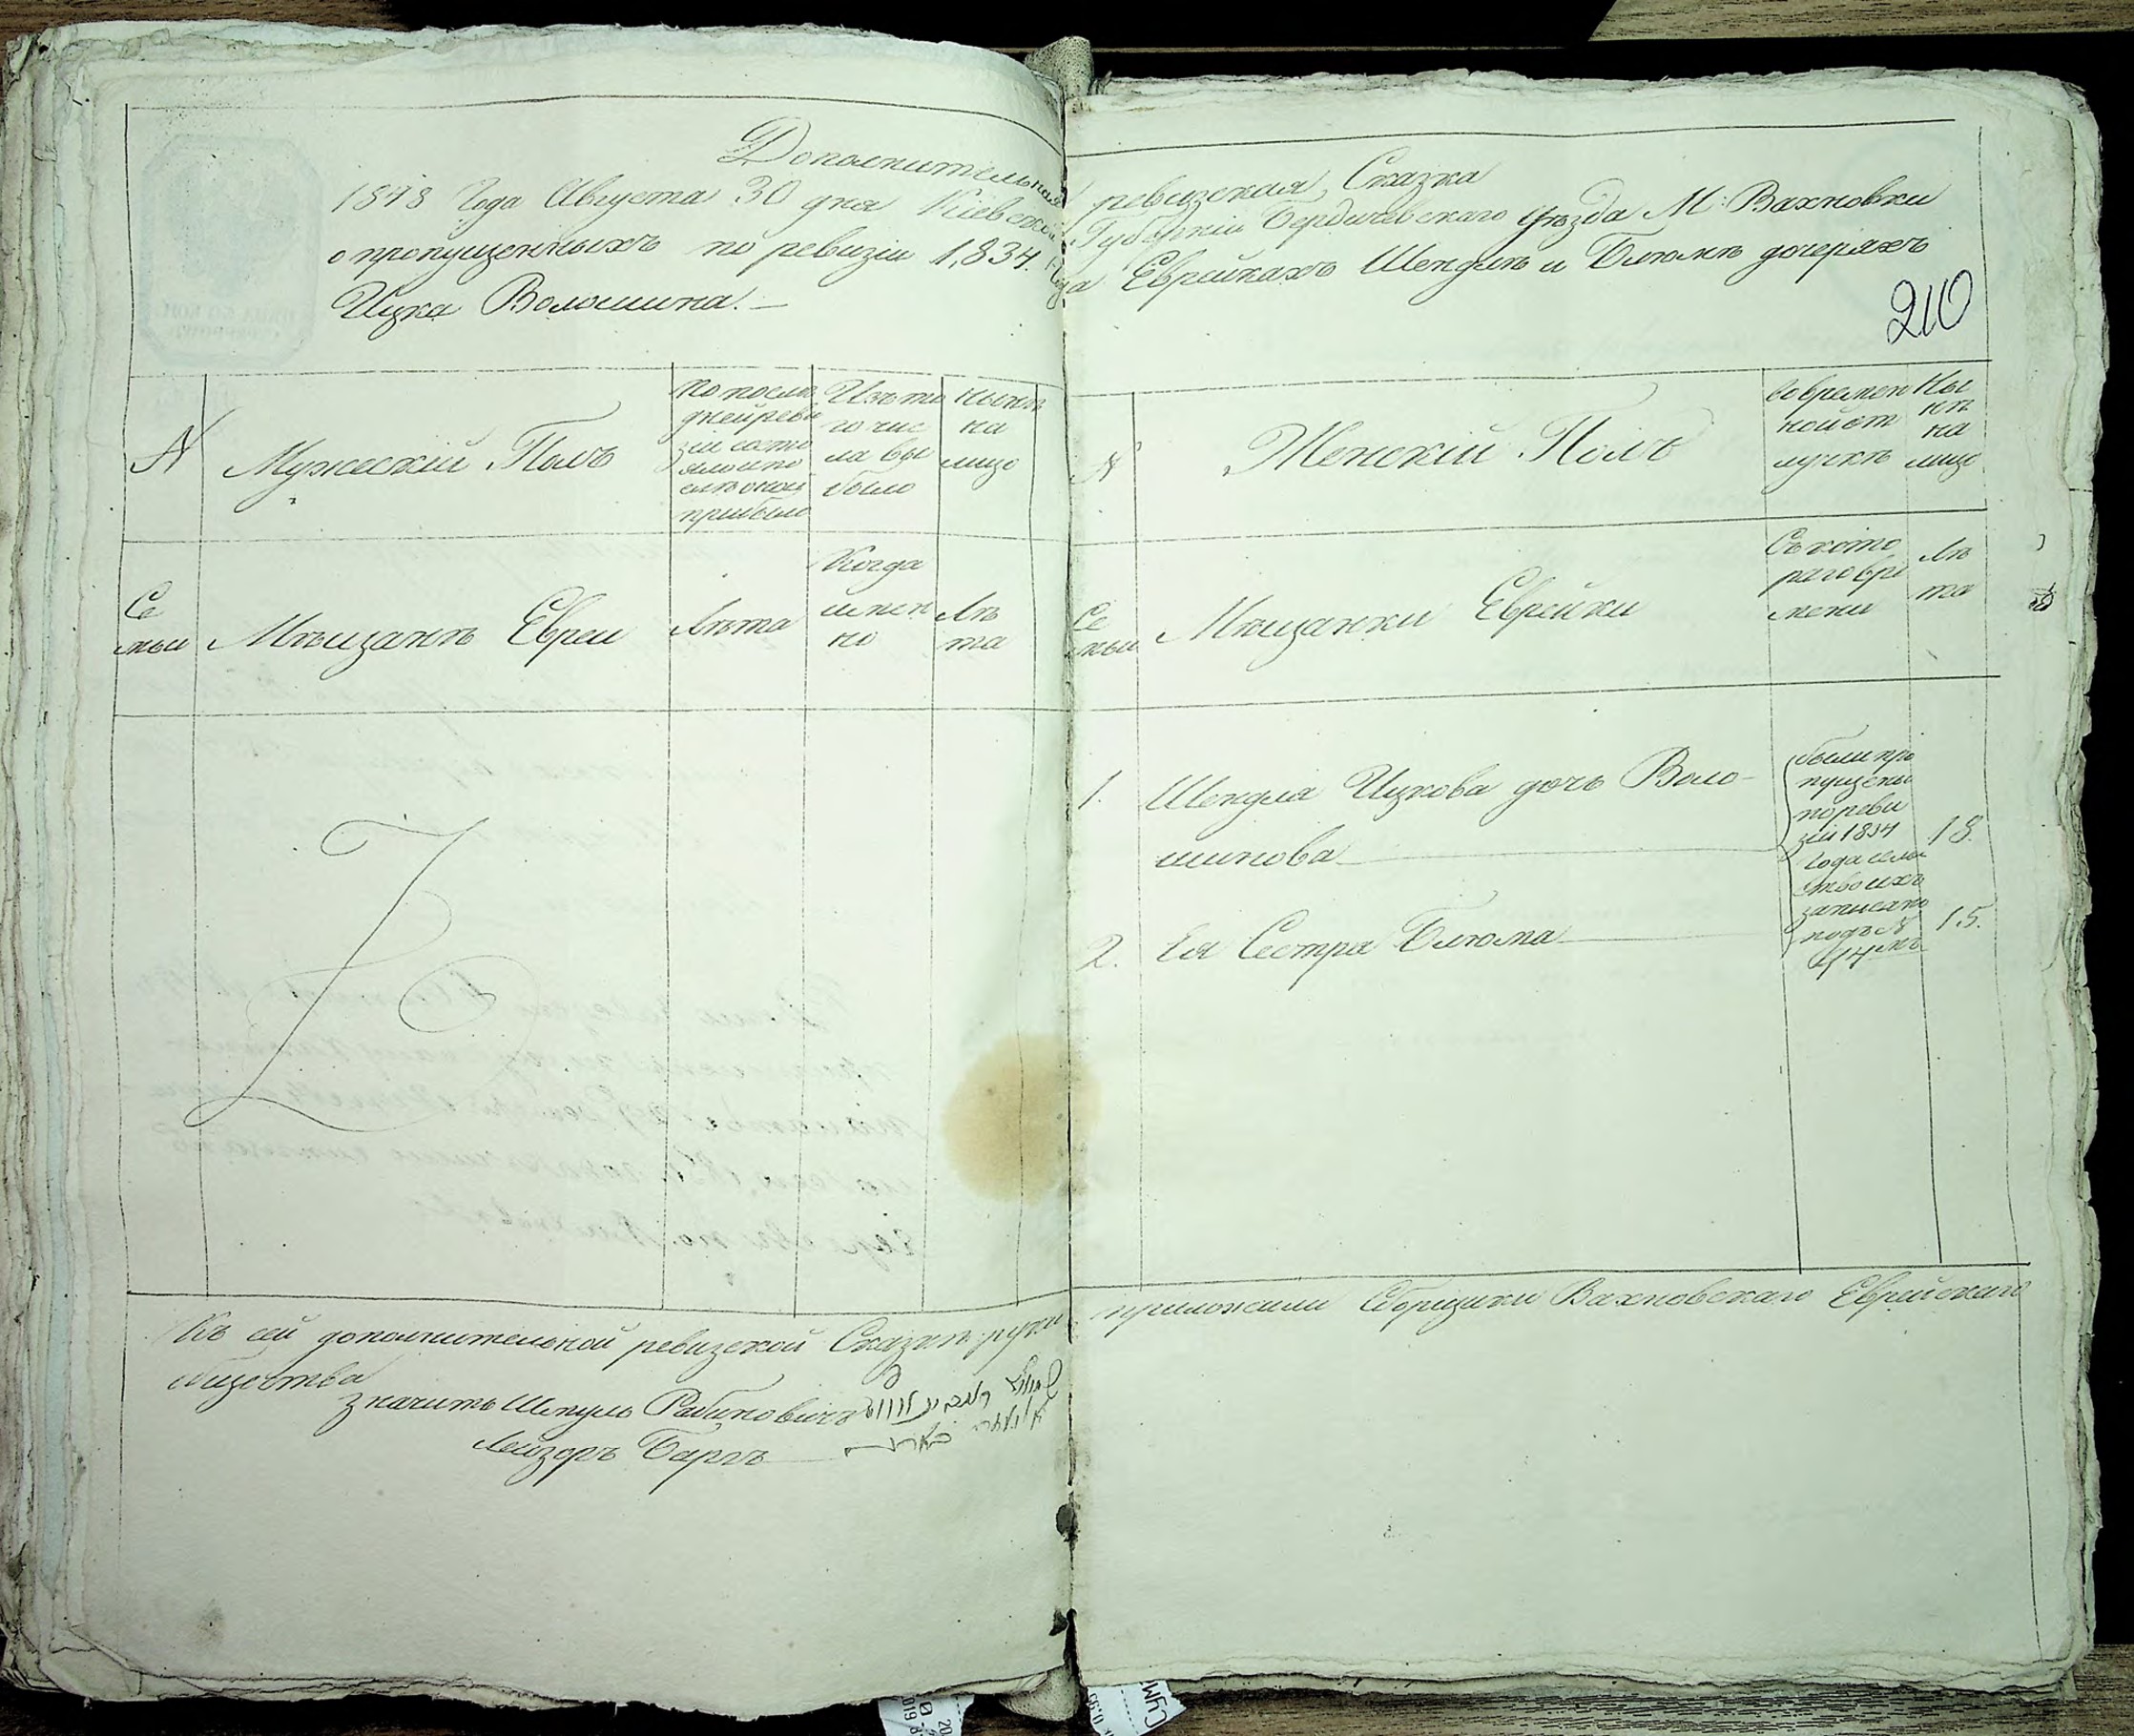 Дополнительная ревизская Сказка
1848 Года Августа 30 дня Кіевской Губерніи Бердичевскаго уѣзда М: Вахновки
о пропущенныхъ по ревизіи 1,834. Года Еврейкахъ Шендлѣ и Блюмѣ дочеряхъ
Ицка Волошина.—
210
№
Мужескій Полъ
По после
дней реви
зіи состо
яло и по
слѣ оной
прибыло
Изъ то
го чис
ла вы
было
Нынѣ
на
лицо
Се
мьи
Мѣщанѣ Евреи
Лѣта
Когда
имен
но
Лѣ
та
№
Женскій Полъ
Во времен
ной от
лучкѣ
Ны
нѣ
на
лицо
Се
мьи
Мѣщанки Еврейки
Съ кото
раго вре
мени
Лѣ
та
1. Шендля Ицкова дочь Воло-
шинова
18.
2. Ея Сестра Блюма
15.
были про
пущены
по реви
зіи 1834
Года семе
йство ихъ
записано
подъ №
Къ сей дополнительной ревизской Сказкѣ руки приложили Сборщики Вахновскаго Еврейскаго
общества
значитъ Шмуль Рабиновичъ
Лейзоръ Баргъ